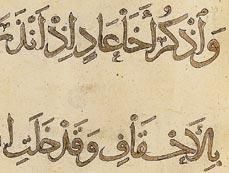 وَٱذْكُرْ أَخَا عَادٍ إِذْ أَنذَرَ
بِٱلْأَحْقَافِ وَقَدْ خَلَتِ